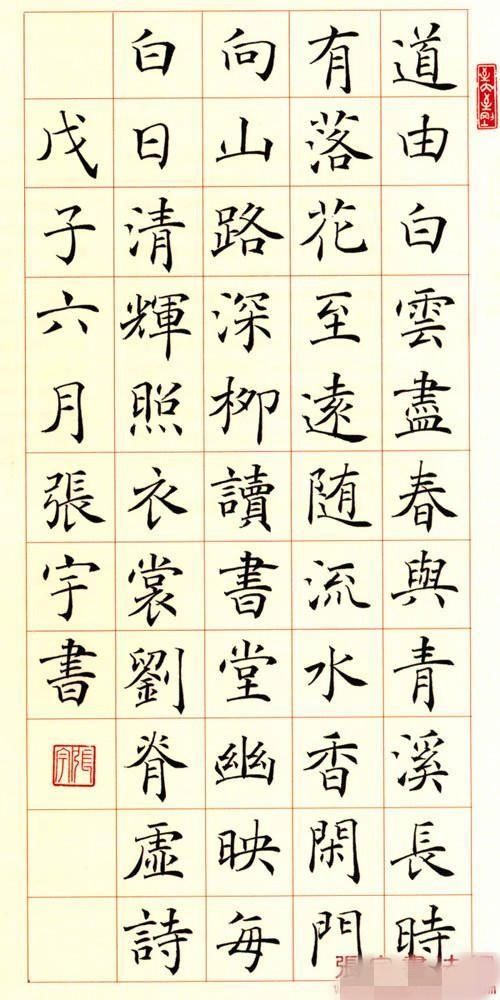 道由白雲盡春與青溪長時
有落花至遠随流水香閑門
向山路深柳讀書堂幽映每
白日清輝照衣裳劉脊虛詩
戊子六月張宇書
張宇